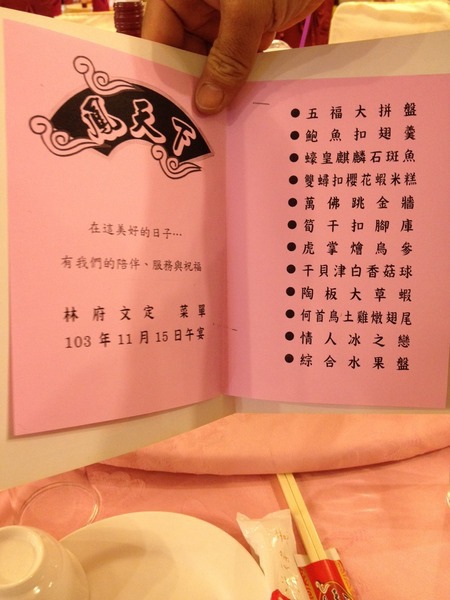 鳳天下
在這美好的日子…
有我們的陪伴、服務與祝福
林府文定 菜單
103年11月15日午宴
●五福大拼盤
●鮑魚扣翅羹
●蠔皇麒麟石斑魚
●雙蟳扣櫻花蝦米糕
●萬佛跳金牆
●筍干扣腳庫
●虎掌燴烏參
●干貝津白香菇球
●陶板大草蝦
●何首烏土雞燉翅尾
●情人冰之戀
●綜合水果盤